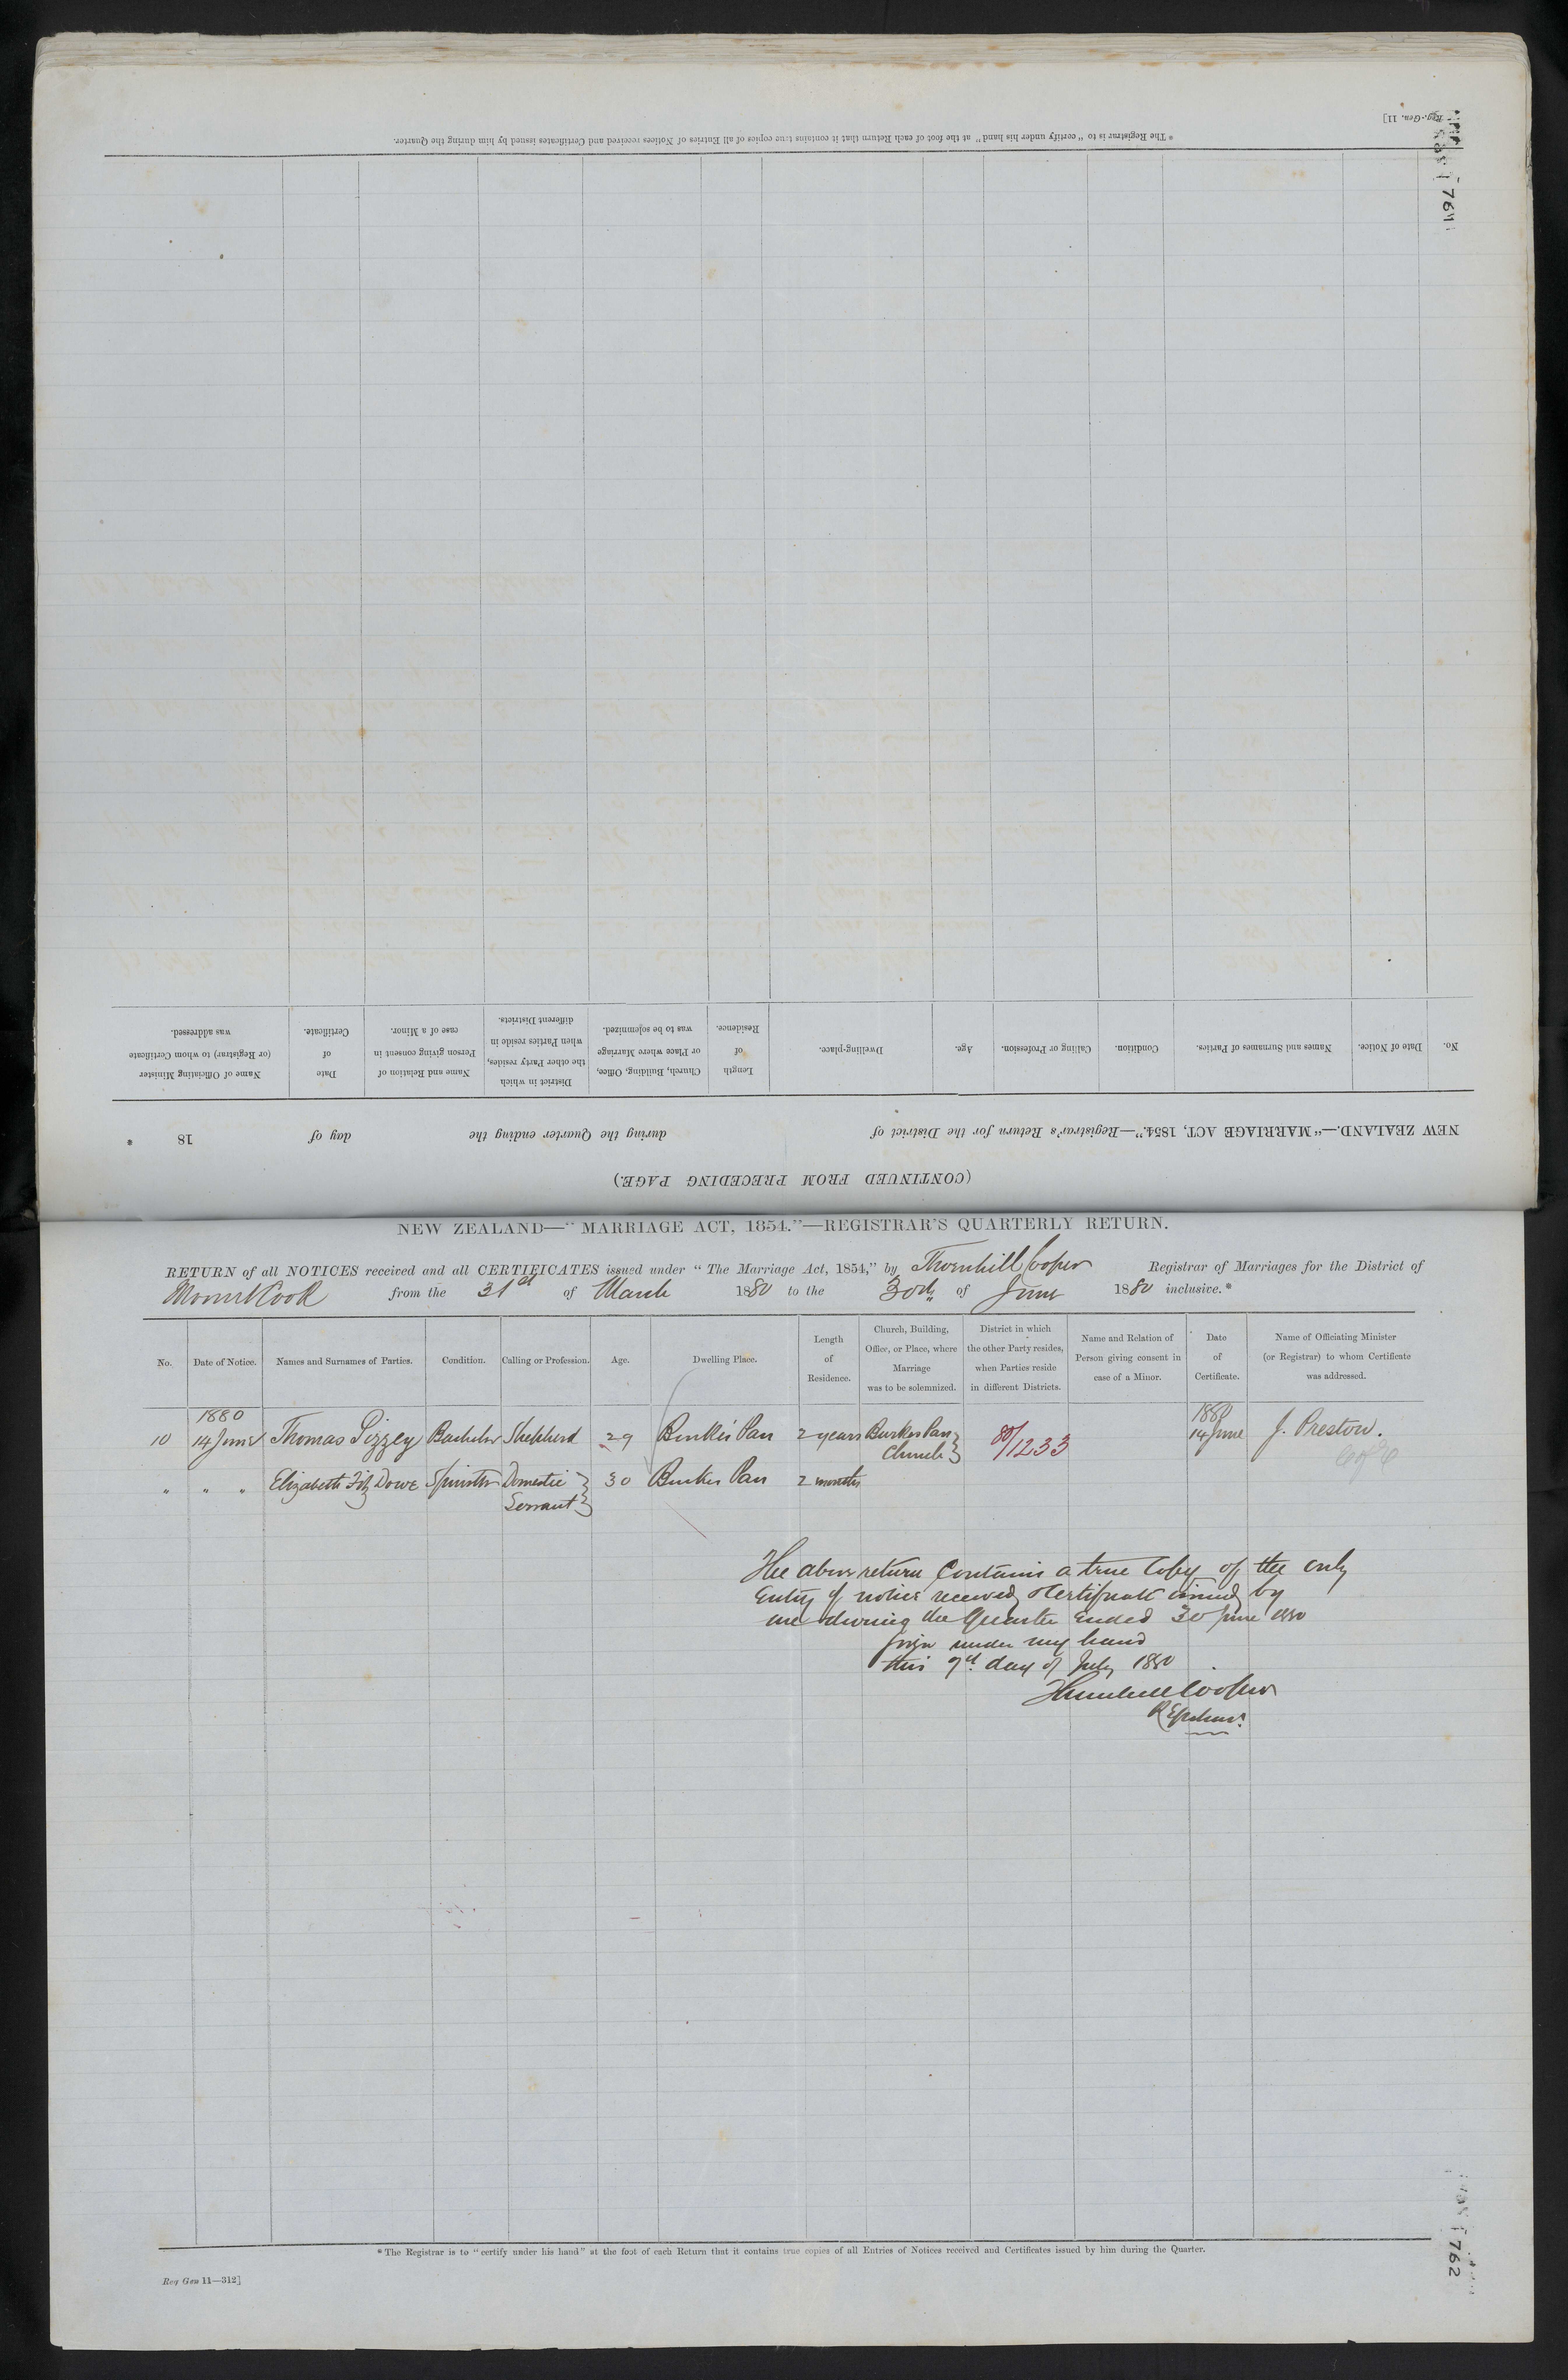 [Reg.-Gen. 11]
* The Registrar is to "certify under his hand" at the foot of each Return that it contains true copies of all Entries of Notices received and Certificates issued by him during the Quarter.
761
(CONTINUED FROM PRECEDING PAGE.)
NEW ZEALAND.—"MARRIAGE ACT, 1854."—Registrar's Return for the District of during the Quarter ending the day of 18 .
No. Date of Notice. Names and Surnames of Parties. Condition. Calling or Profession. Age. Dwelling-place. Length of Residence. Church, Building, Office, or Place where Marriage was to be solemnized. District in which the other Party resides, when Parties reside in different Districts. Name and Relation of Person giving consent in case of a Minor. Date of Certificate. Name of Officiating Minister (or Registrar) to whom Certificate was addressed.
NEW ZEALAND—"MARRIAGE ACT, 1854."—REGISTRAR'S QUARTERLY RETURN.
RETURN of all NOTICES received and all CERTIFICATES issued under "The Marriage Act, 1854," by Thornhill Cooper Registrar of Marriages for the District of
Mount Cook from the 31st of March 1880 to the 30th of June 1880 inclusive.*
No. Date of Notice. Names and Surnames of Parties. Condition. Calling or Profession. Age. Dwelling Place. Length of Residence. Church, Building, Office, or Place, where Marriage was to be solemnized. District in which the other Party resides, when Parties reside in different Districts. Name and Relation of Person giving consent in case of a Minor. Date of Certificate. Name of Officiating Minister (or Registrar) to whom Certificate was addressed.
1880 1880
10 14 June Thomas Pizzey Bachelor Shepherd 29 Burkes Pass 2 years Burkes Pass 80/1233 14 June J. Preston.
Church C of E
" " " Elizabeth Fitz Dowe Spinster Domestic 30 Burkes Pass 2 months
Servant
The above return contains a true Copy of the only
Entry of notice received & Certificate issued by
me during the Quarter ended 30 June 1880
under my hand
this 7th day of July 1880
Thornhill Cooper
Registrar.
* The Registrar is to "certify under his hand" at the foot of each Return that it contains true copies of all Entries of Notices received and Certificates issued by him during the Quarter.
Reg Gen 11—312]
762